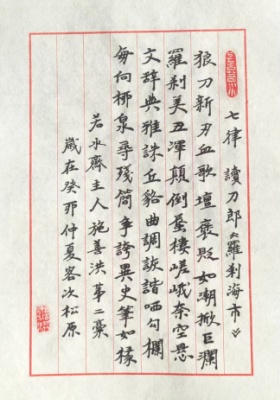 七律 讀刀郎《羅刹海市》
狼刀新刃血歌壇褒貶如潮掀巨瀾
羅刹美丑渾顛倒蜃樓嵯峨奈空懸
文辭典雅誅丘貉曲調詼諧哂勾欄
每向柳泉尋殘簡爭誇異史筆如椽
若水齋主人施善洪第二稾
歲在癸卯仲夏客次松原